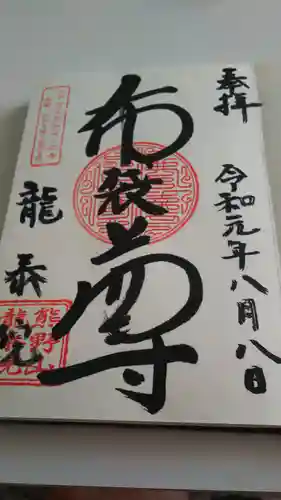 奉拝
令和元年八月八日
布袋尊
龍泰院
熊野山
龍泰院